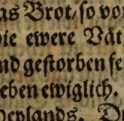 as Brot / so vo
ie ewere Vät
nd gestorben se
eben ewiglich.
eylands. D